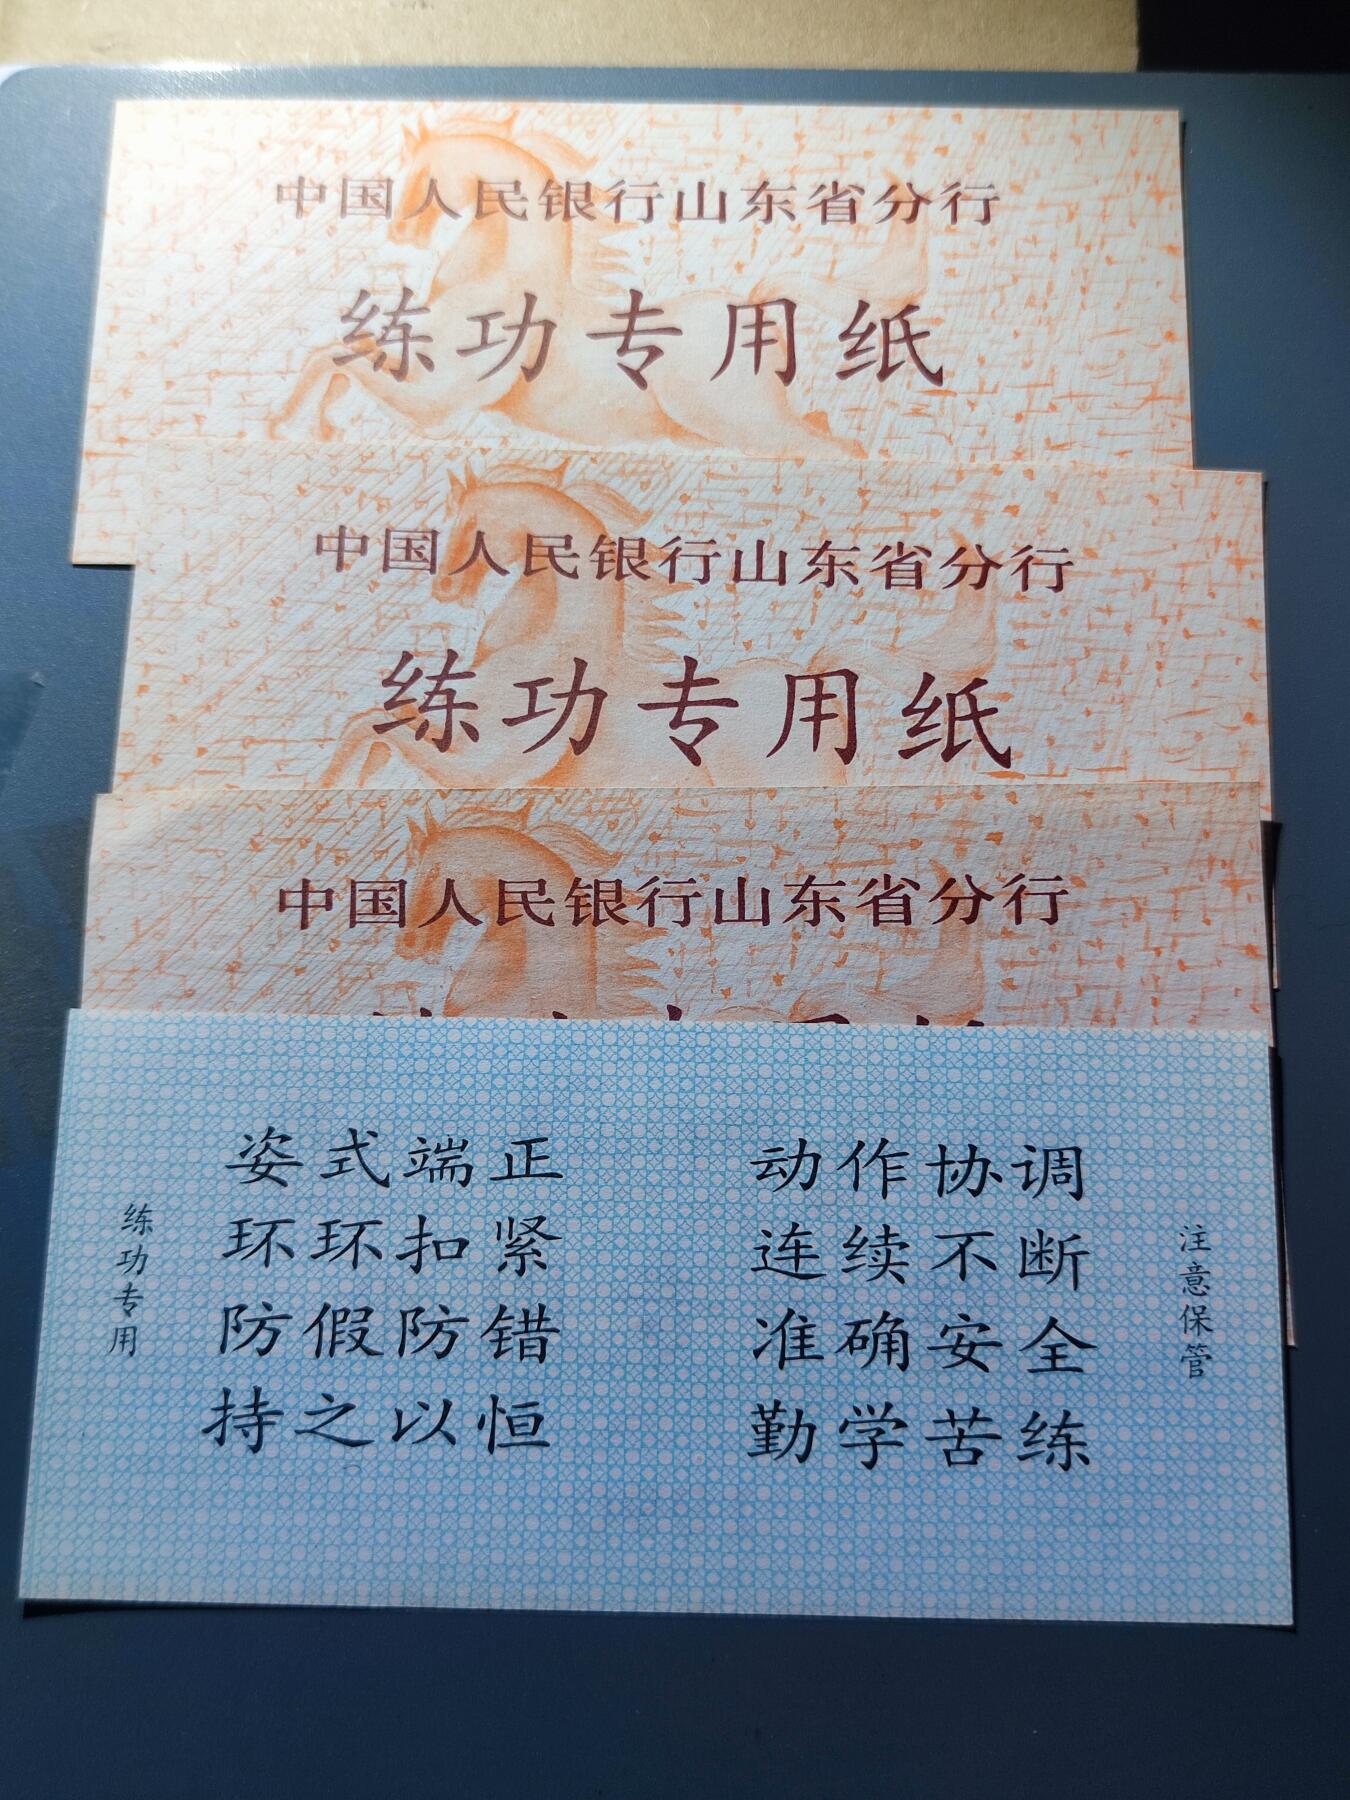 中国人民银行山东省分行
练功专用纸
中国人民银行山东省分行
练功专用纸
中国人民银行山东省分行
练功专用
姿式端正
环环扣紧
防假防错
持之以恒
动作协调
连续不断
准确安全
勤学苦练
注意保管